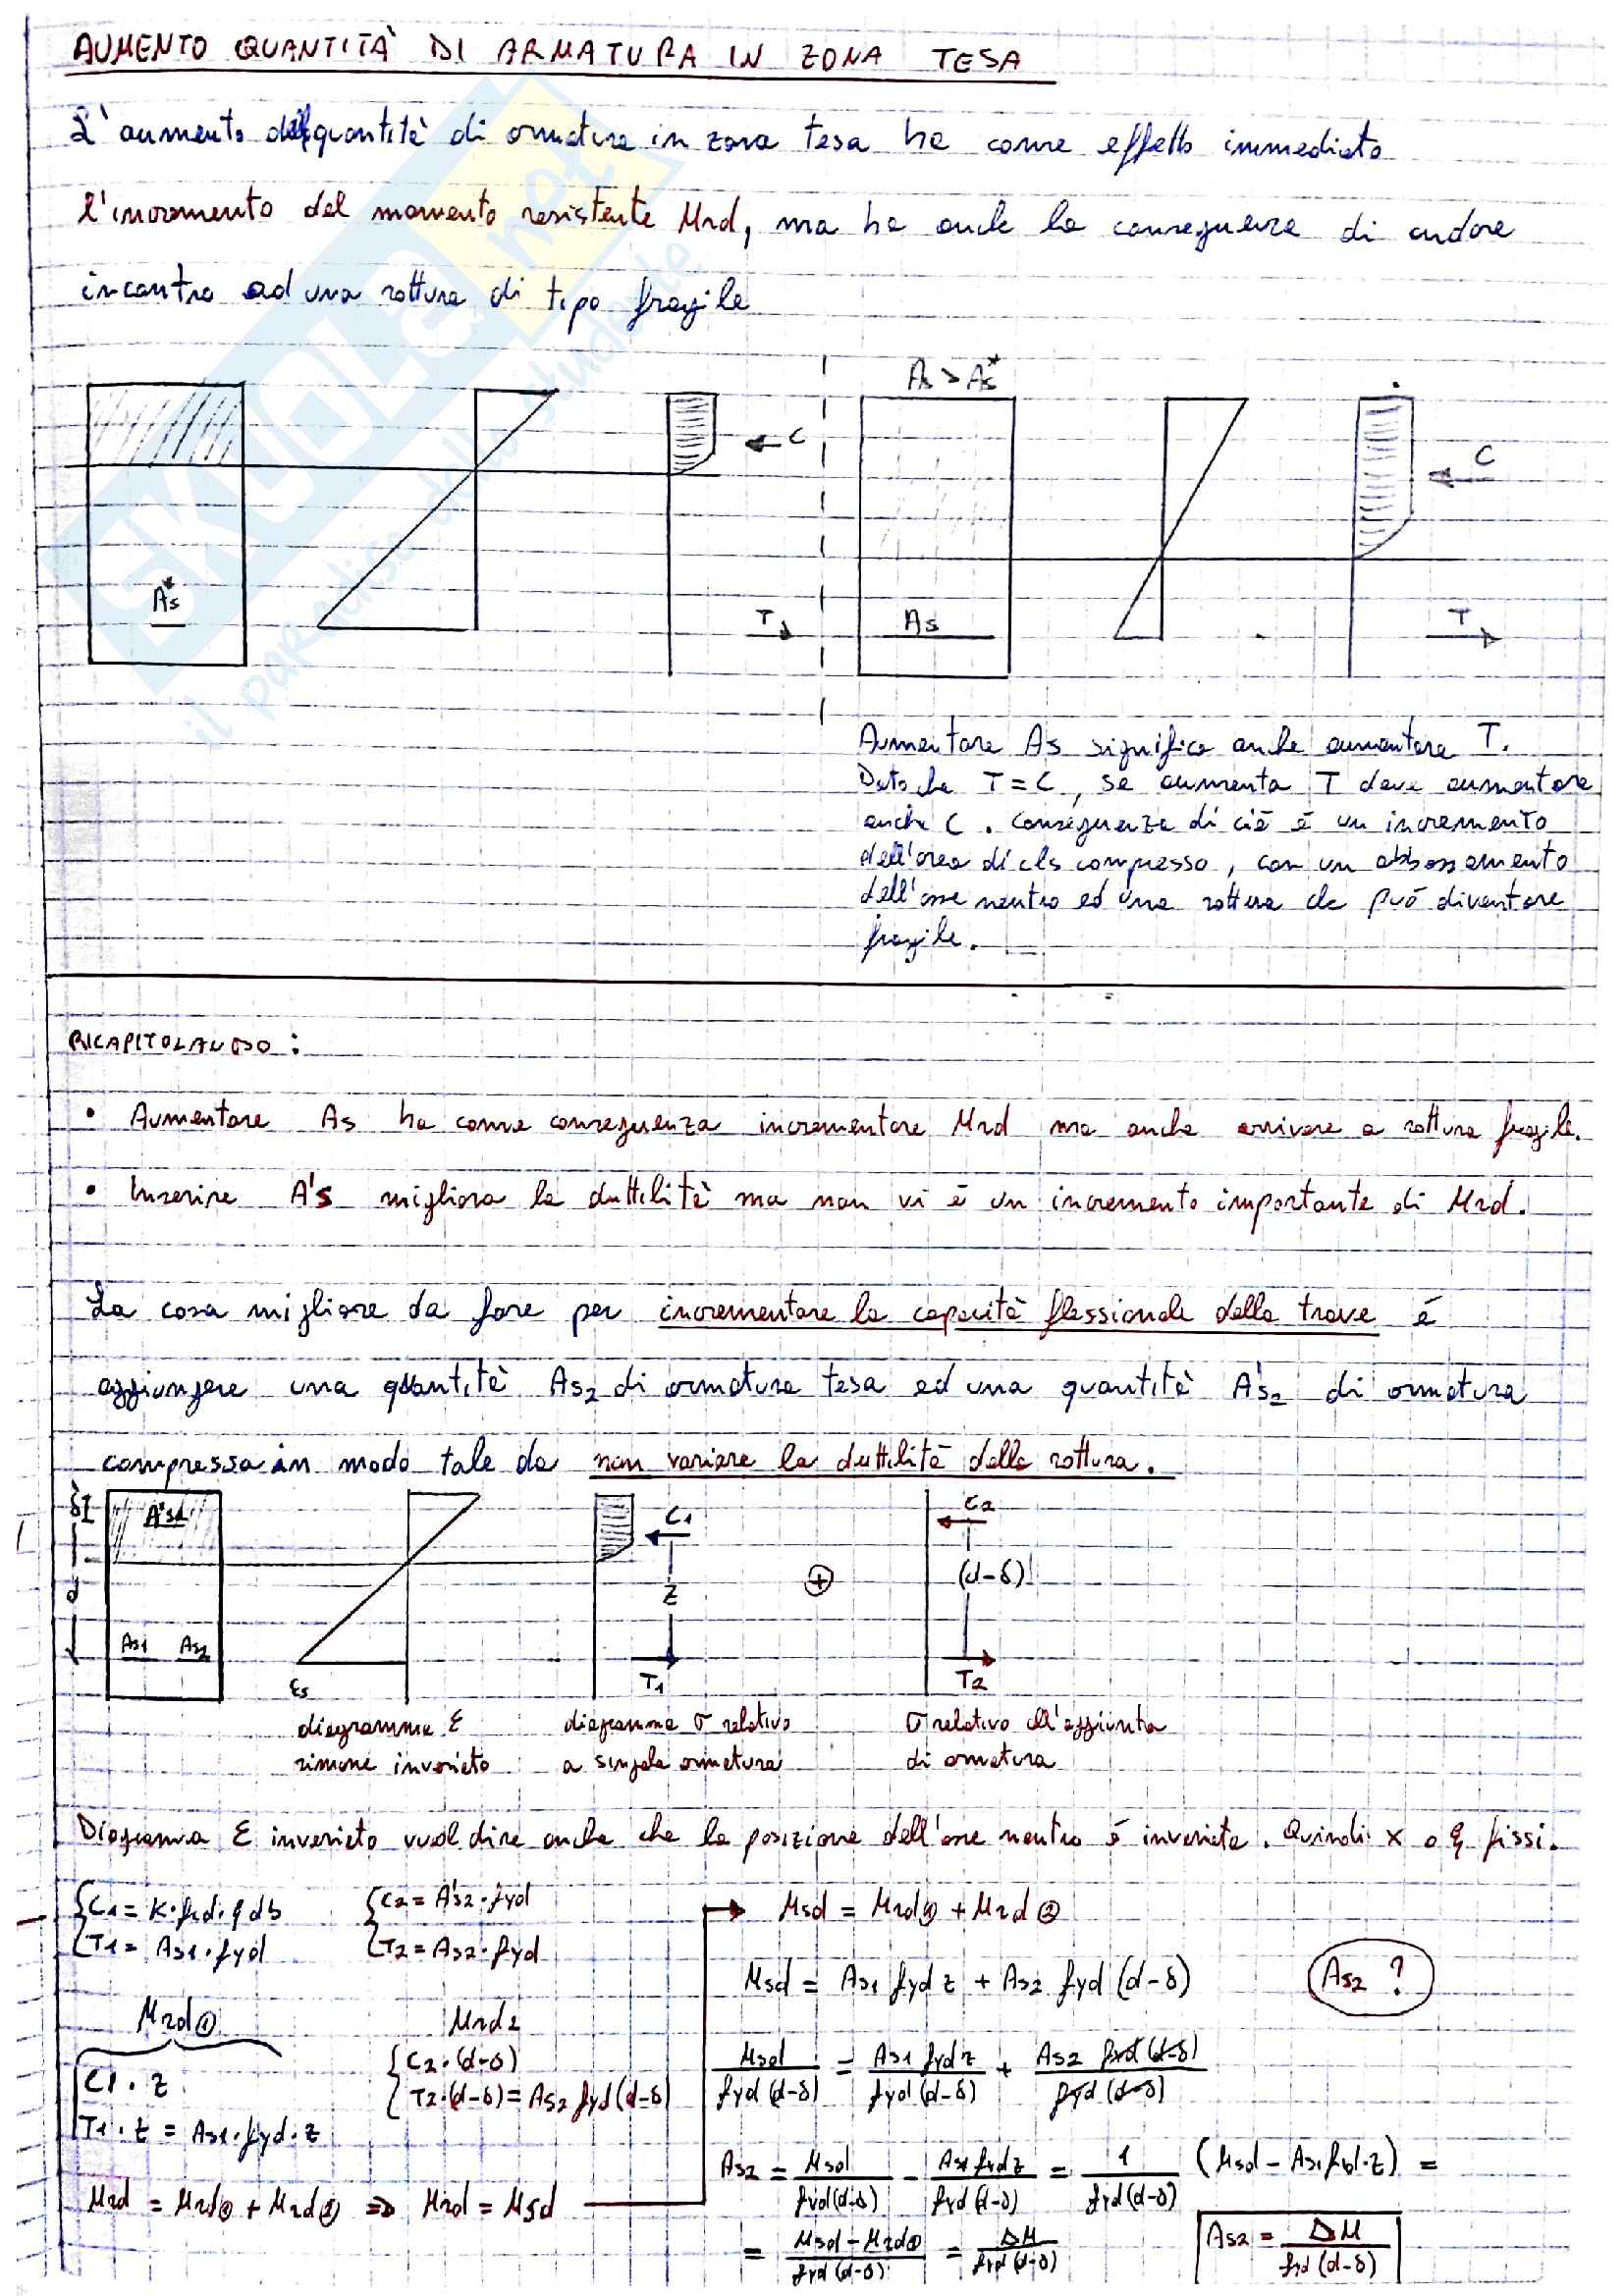 AUMENTO QUANTITÀ DI ARMATURA IN ZONA TESA
L'aumento quantità di armatura in zona tesa ha come effetto immediato
l'incremento del momento resistente Mrd, ma ha anche la conseguenza di andare
incontro ad una rottura di tipo fragile
As > As*
C
C
As*
T
As
T
Aumentare As significa anche aumentare T.
Dato che T = C, se aumenta T deve aumentare
anche C. Conseguenza di ciò è un incremento
dell'area di cls compresso, con un abbassamento
dell'asse neutro ed una rottura che può diventare
fragile.
RICAPITOLANDO:
• Aumentare As ha come conseguenza incrementare Mrd ma anche arrivare a rottura fragile.
• Inserire A's migliora la duttilità ma non vi è un incremento importante di Mrd.
La cosa migliore da fare per incrementare la capacità flessionale della trave è
aggiungere una quantità As2 di armatura tesa ed una quantità A's2 di armatura
compressa in modo tale da non variare la duttilità della rottura.
δ
A's2
C1
C2
d
z
⊕
(d-δ)
As1 As2
εs
T1
T2
diagramma ε
rimane invariato
diagramma σ relativo
a singola armatura
σ relativo all'aggiunta
di armatura
Diagramma ε invariato vuol dire anche che la posizione dell'asse neutro è invariata. Quindi x o ξ fissi.
C1 = K·fcd·ξdb
T1 = As1·fyd
C2 = A's2·fyd
T2 = As2·fyd
Mrd①
C1·z
T1·z = As1·fyd·z
Mrd2
C2·(d-δ)
T2·(d-δ) = As2 fyd(d-δ)
Mrd = Mrd① + Mrd② ⇒ Mrd = Msd
Msd = Mrd① + Mrd②
Msd = As1 fyd z + As2 fyd (d-δ)
As2 ?
Msd / fyd(d-δ) = As1 fyd z / fyd(d-δ) + As2 fyd(d-δ) / fyd(d-δ)
As2 = Msd / fyd(d-δ) - As1 fyd z / fyd(d-δ) = 1 / fyd(d-δ) (Msd - As1 fyd·z) =
= Msd - Mrd① / fyd(d-δ) = ΔM / fyd(d-δ)
As2 = ΔM / fyd(d-δ)
SKUOLA.net
il paradiso dello studente